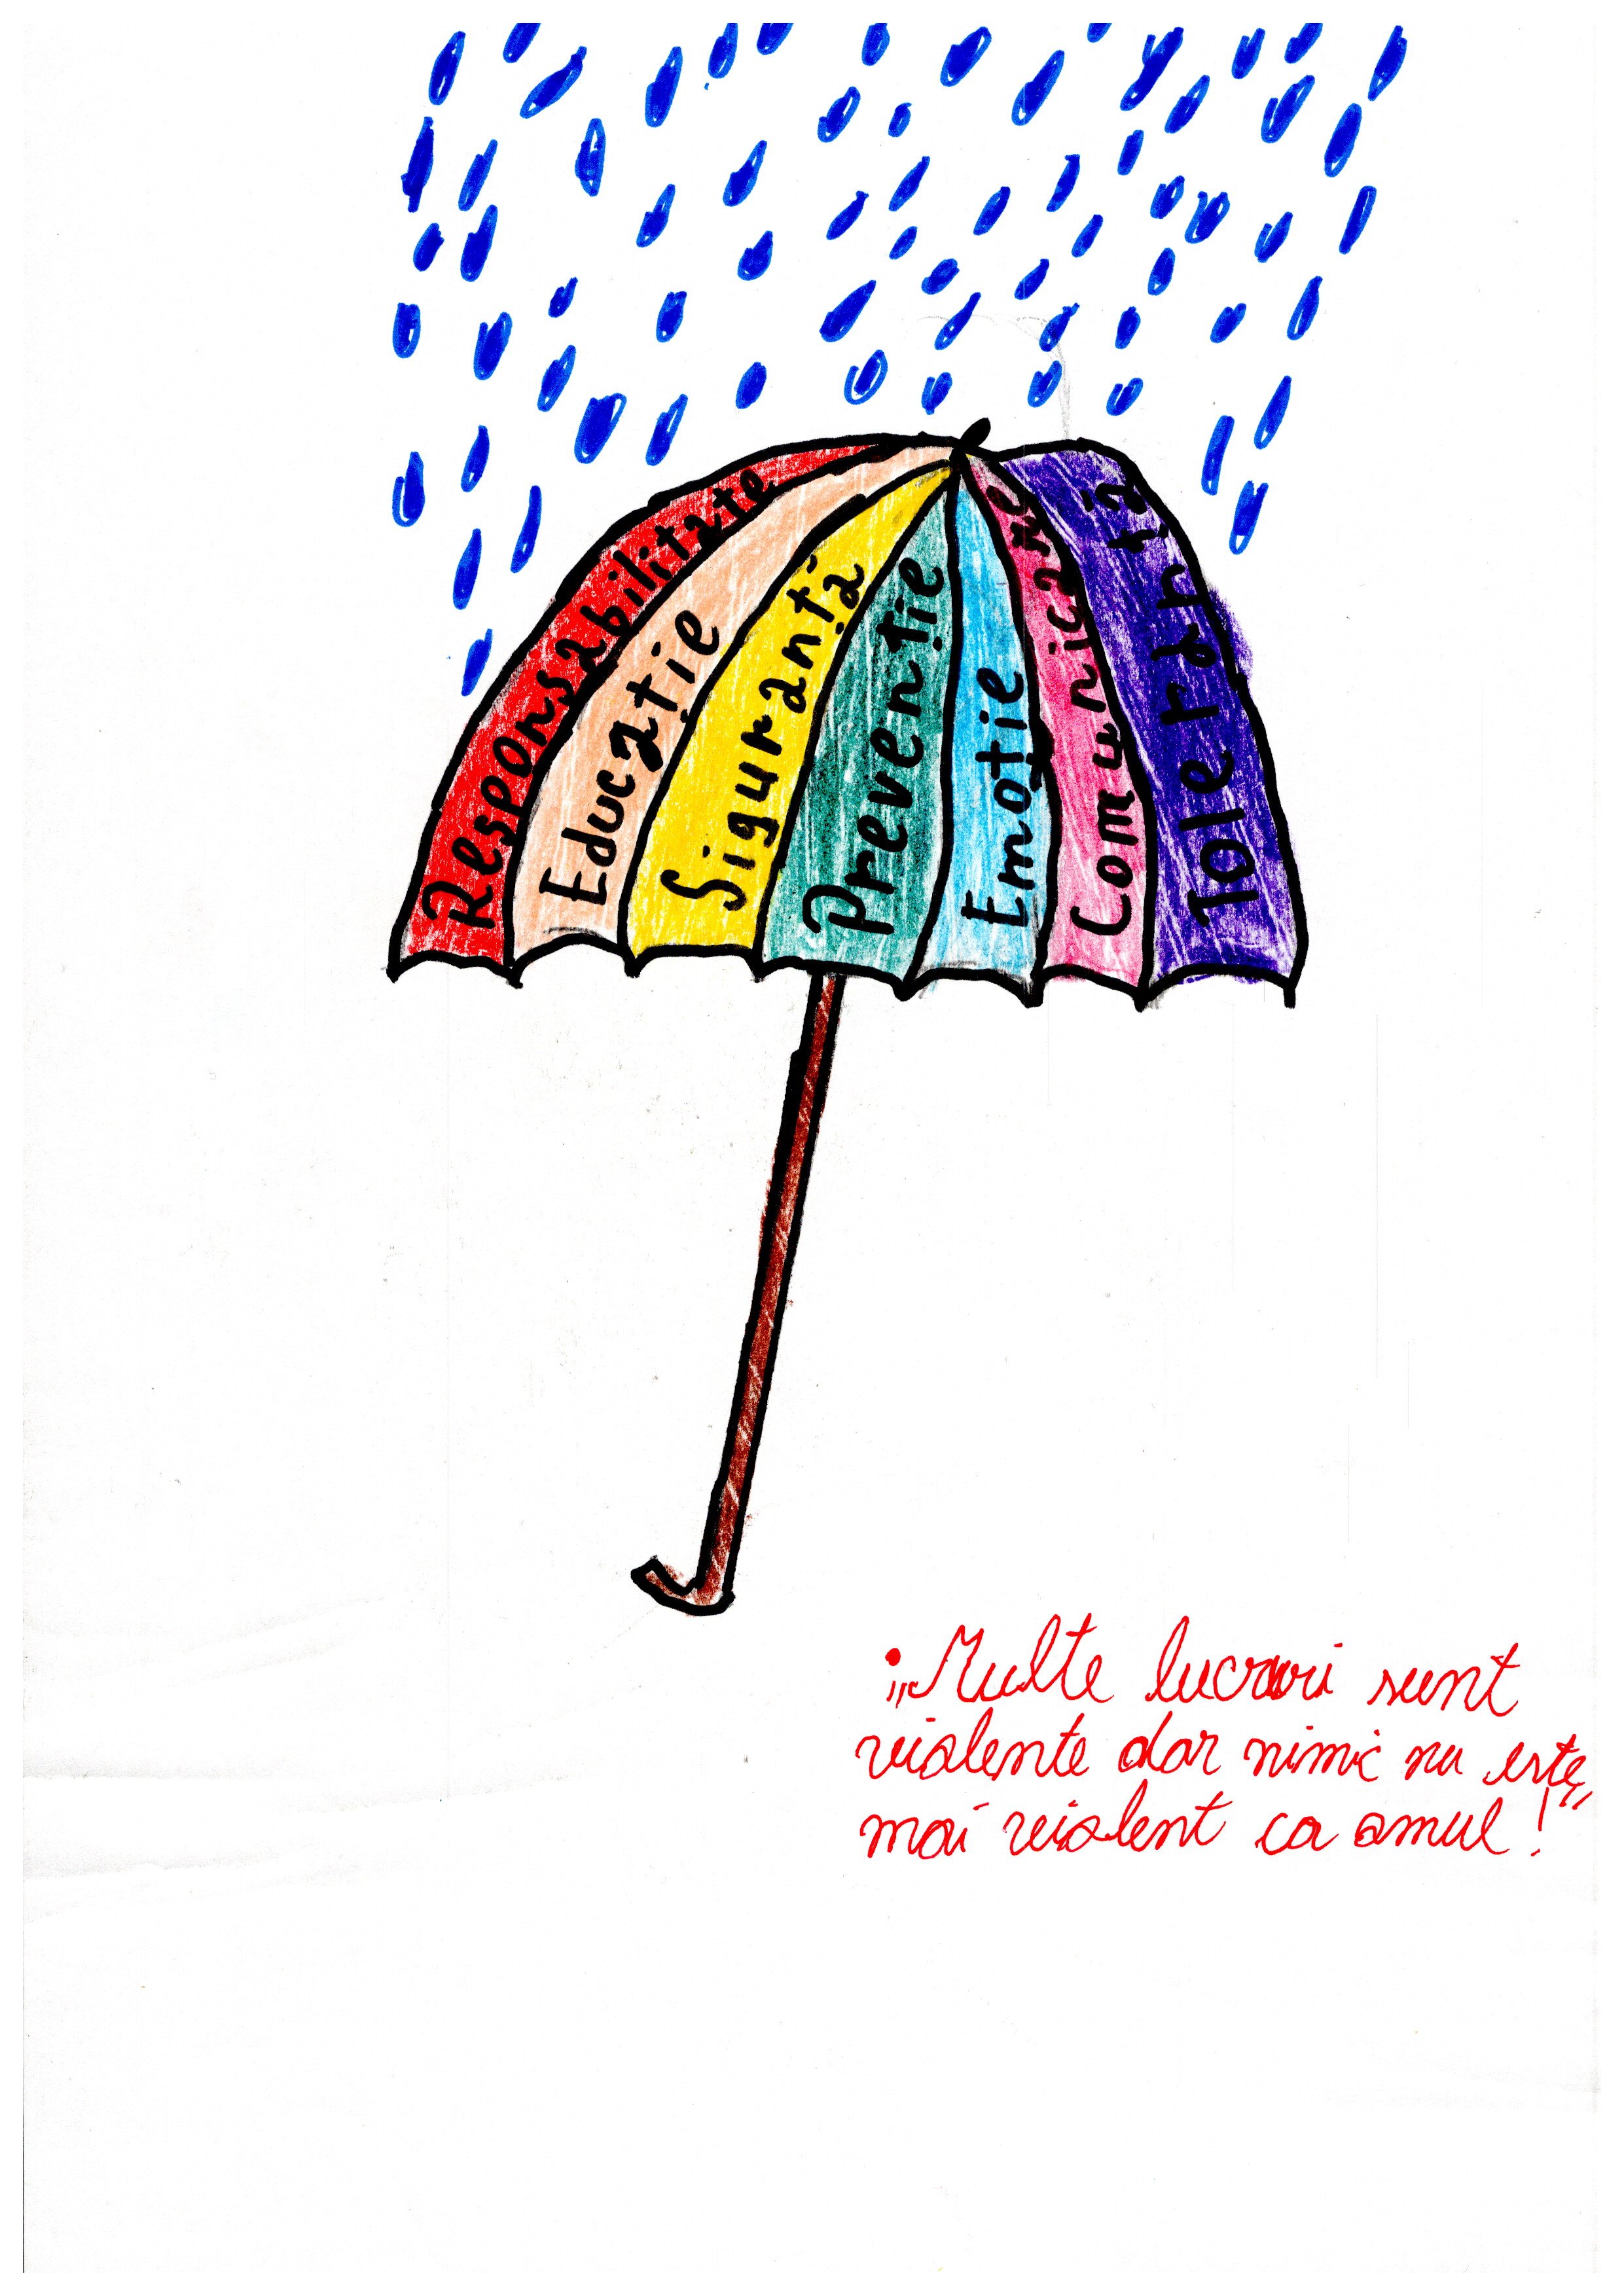 Responsabilitate
Educație
Siguranță
Prevenție
Emoție
Comunicare
Toleranță
„Multe lucruri sunt
violente dar nimic nu este
mai violent ca omul!”